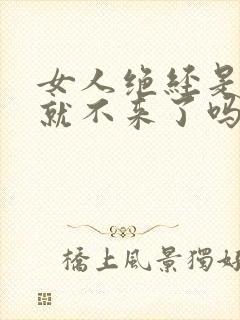 女人绝经是
就不来了吗
橋上風景獨好